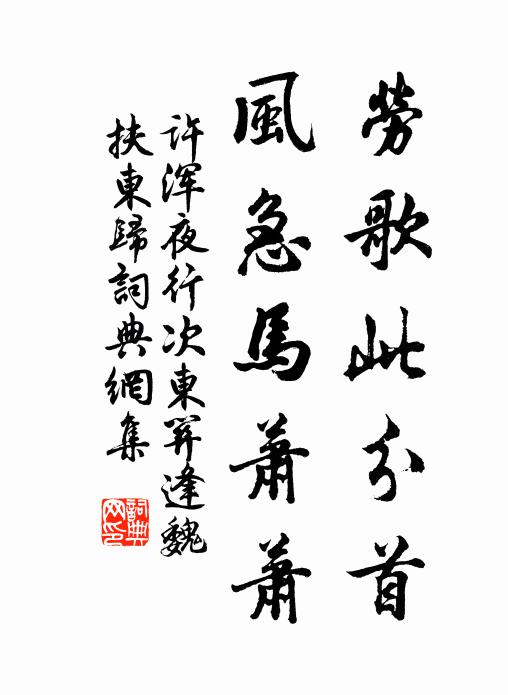 勞歌此分首
風急馬蕭蕭
許渾夜行次東關逢魏
扶東歸詞典網集
詞典
网印